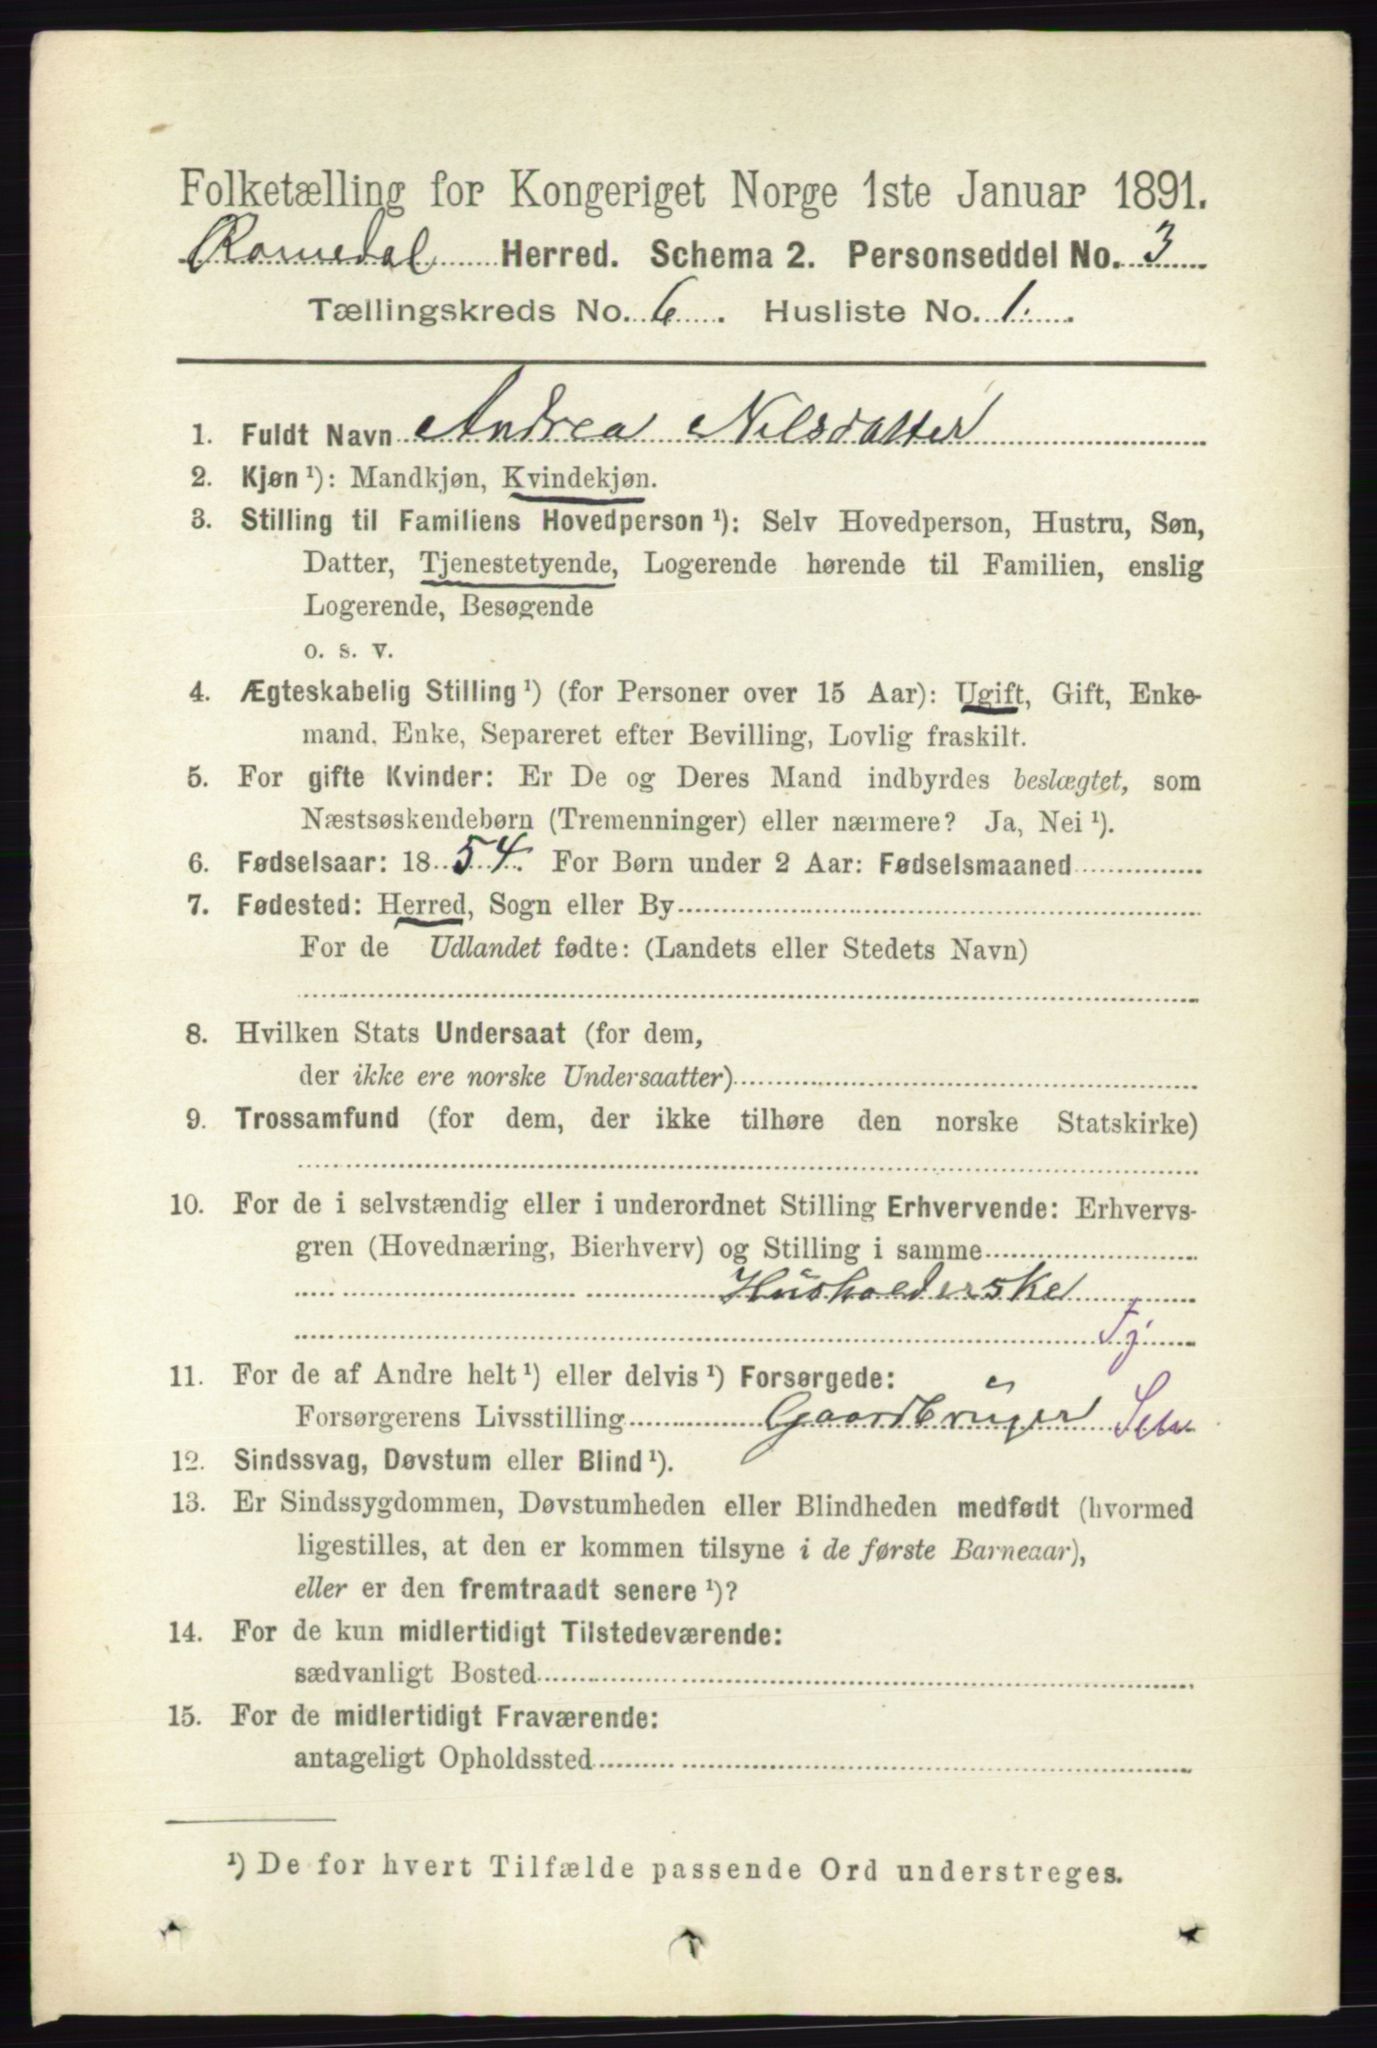 Folketælling for Kongeriget Norge 1ste Januar 1891.
Romedal Herred. Schema 2. Personseddel No. 3
Tællingskreds No. 6. Husliste No. 1.
1. Fuldt Navn Andrea Nilsdatter
2. Kjøn ¹): Mandkjøn, Kvindekjøn.
3. Stilling til Familiens Hovedperson ¹): Selv Hovedperson, Hustru, Søn,
Datter, Tjenestetyende, Logerende hørende til Familien, enslig
Logerende, Besøgende
o. s. v.
4. Ægteskabelig Stilling ¹) (for Personer over 15 Aar): Ugift, Gift, Enke-
mand, Enke, Separeret efter Bevilling, Lovlig fraskilt.
5. For gifte Kvinder: Er De og Deres Mand indbyrdes beslægtet, som
Næstsøskendebørn (Tremenninger) eller nærmere? Ja, Nei ¹).
6. Fødselsaar: 1854. For Børn under 2 Aar: Fødselsmaaned
7. Fødested: Herred, Sogn eller By
For de Udlandet fødte: (Landets eller Stedets Navn)
8. Hvilken Stats Undersaat (for dem,
der ikke ere norske Undersaatter)
9. Trossamfund (for dem, der ikke tilhøre den norske Statskirke)
10. For de i selvstændig eller i underordnet Stilling Erhvervende: Erhvervs-
gren (Hovednæring, Bierhverv) og Stilling i samme
Husholderske
Tj
11. For de af Andre helt ¹) eller delvis ¹) Forsørgede:
Forsørgerens Livsstilling Gaardbruger Selv
12. Sindssvag, Døvstum eller Blind ¹).
13. Er Sindssygdommen, Døvstumheden eller Blindheden medfødt (hvormed
ligestilles, at den er kommen tilsyne i de første Barneaar),
eller er den fremtraadt senere ¹)?
14. For de kun midlertidigt Tilstedeværende:
sædvanligt Bosted
15. For de midlertidigt Fraværende:
antageligt Opholdssted
¹) De for hvert Tilfælde passende Ord understreges.